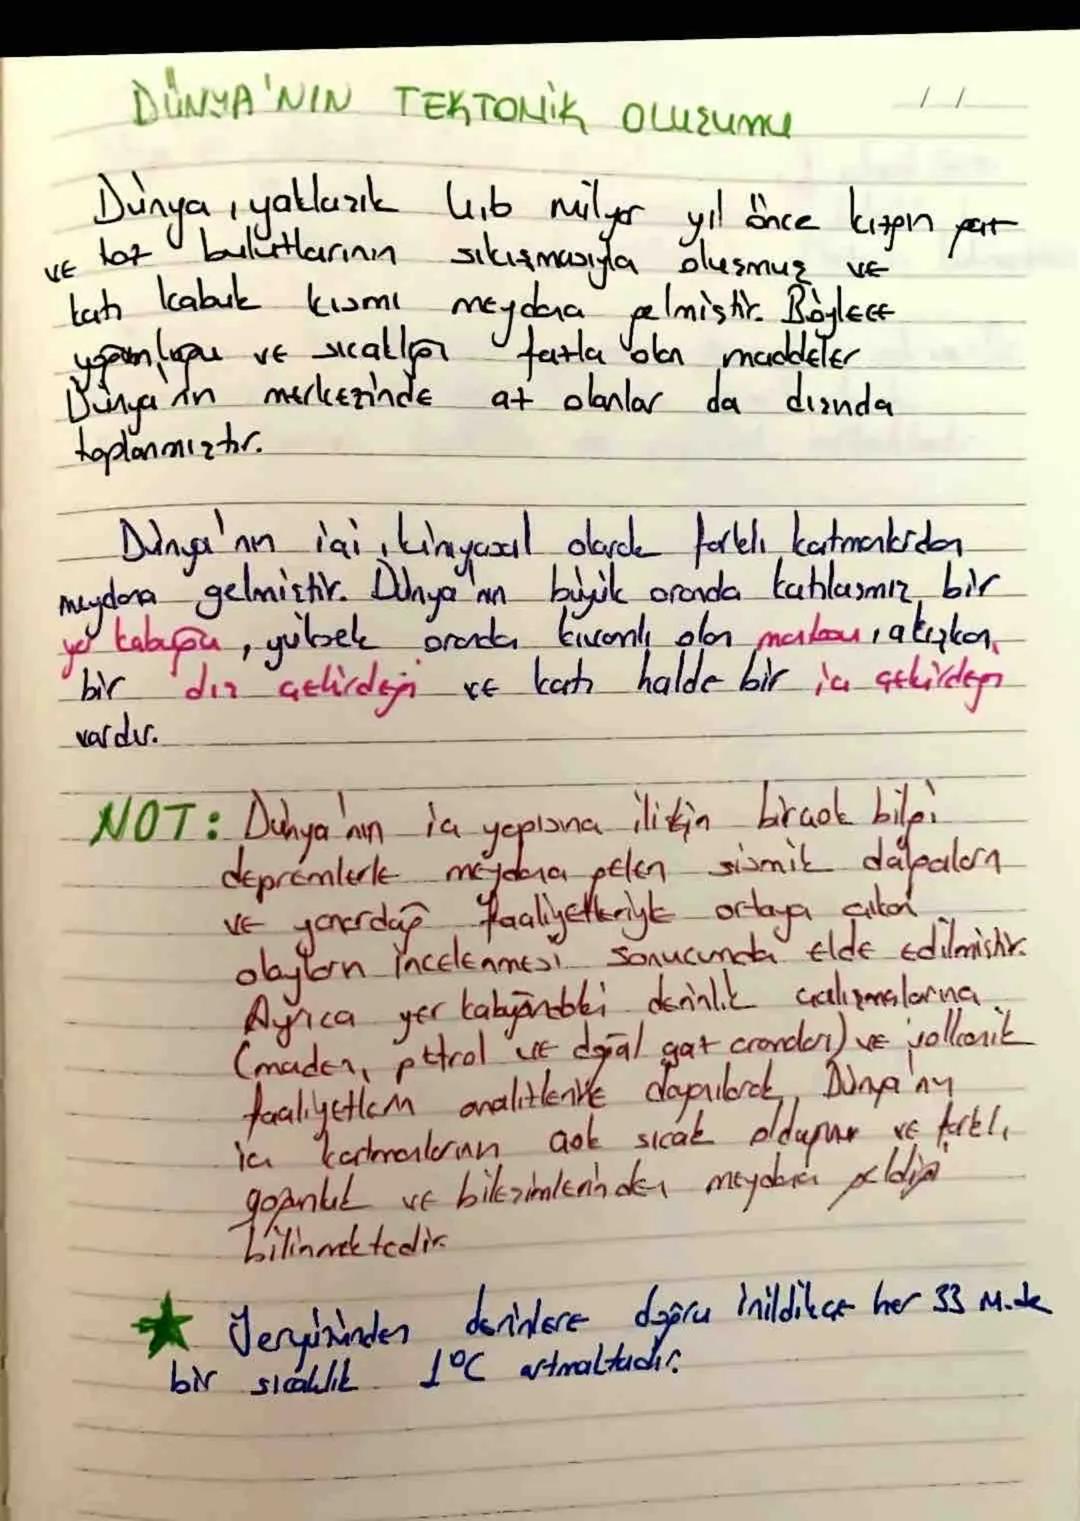 DÜNYA'NIN TEKTONİK OLUŞUMU
/ /
Dünya, yaklaşık 4,6 milyar yıl önce kızgın gaz
ve toz bulutlarının sıkışmasıyla oluşmuş ve
katı kabuk kısmı meydana gelmiştir. Böylece
yoğunluğu ve sıcaklığı fazla olan maddeler
Dünya'nın merkezinde az olanlar da dışında
toplanmıştır.
Dünya'nın içi, kimyasal olarak farklı katmanlardan
meydana gelmiştir. Dünya'nın büyük oranda katılaşmış bir
yer kabuğu, yüksek oranda kıvamlı olan mantosu, akışkan
bir dış çekirdeği ve katı halde bir iç çekirdeği
vardır.
NOT: Dünya'nın iç yapısına ilişkin birçok bilgi
depremlerle meydana gelen sismik dalgaların
ve yanardağ faaliyetleriyle ortaya çıkan
olayların incelenmesi sonucunda elde edilmiştir.
Ayrıca yer kabuğundaki derinlik çalışmalarına
(maden, petrol ve doğal gaz aramaları) ve volkanik
faaliyetlerin analizlerine dayanılarak, Dünya'nın
iç katmanlarının çok sıcak olduğunu ve farklı
yoğunluk ve bileşimlerinden meydana geldiği
bilinmektedir.
Yeryüzünden derinlere doğru inildikçe her 33 M.de
bir sıcaklık 1°C artmaktadır.